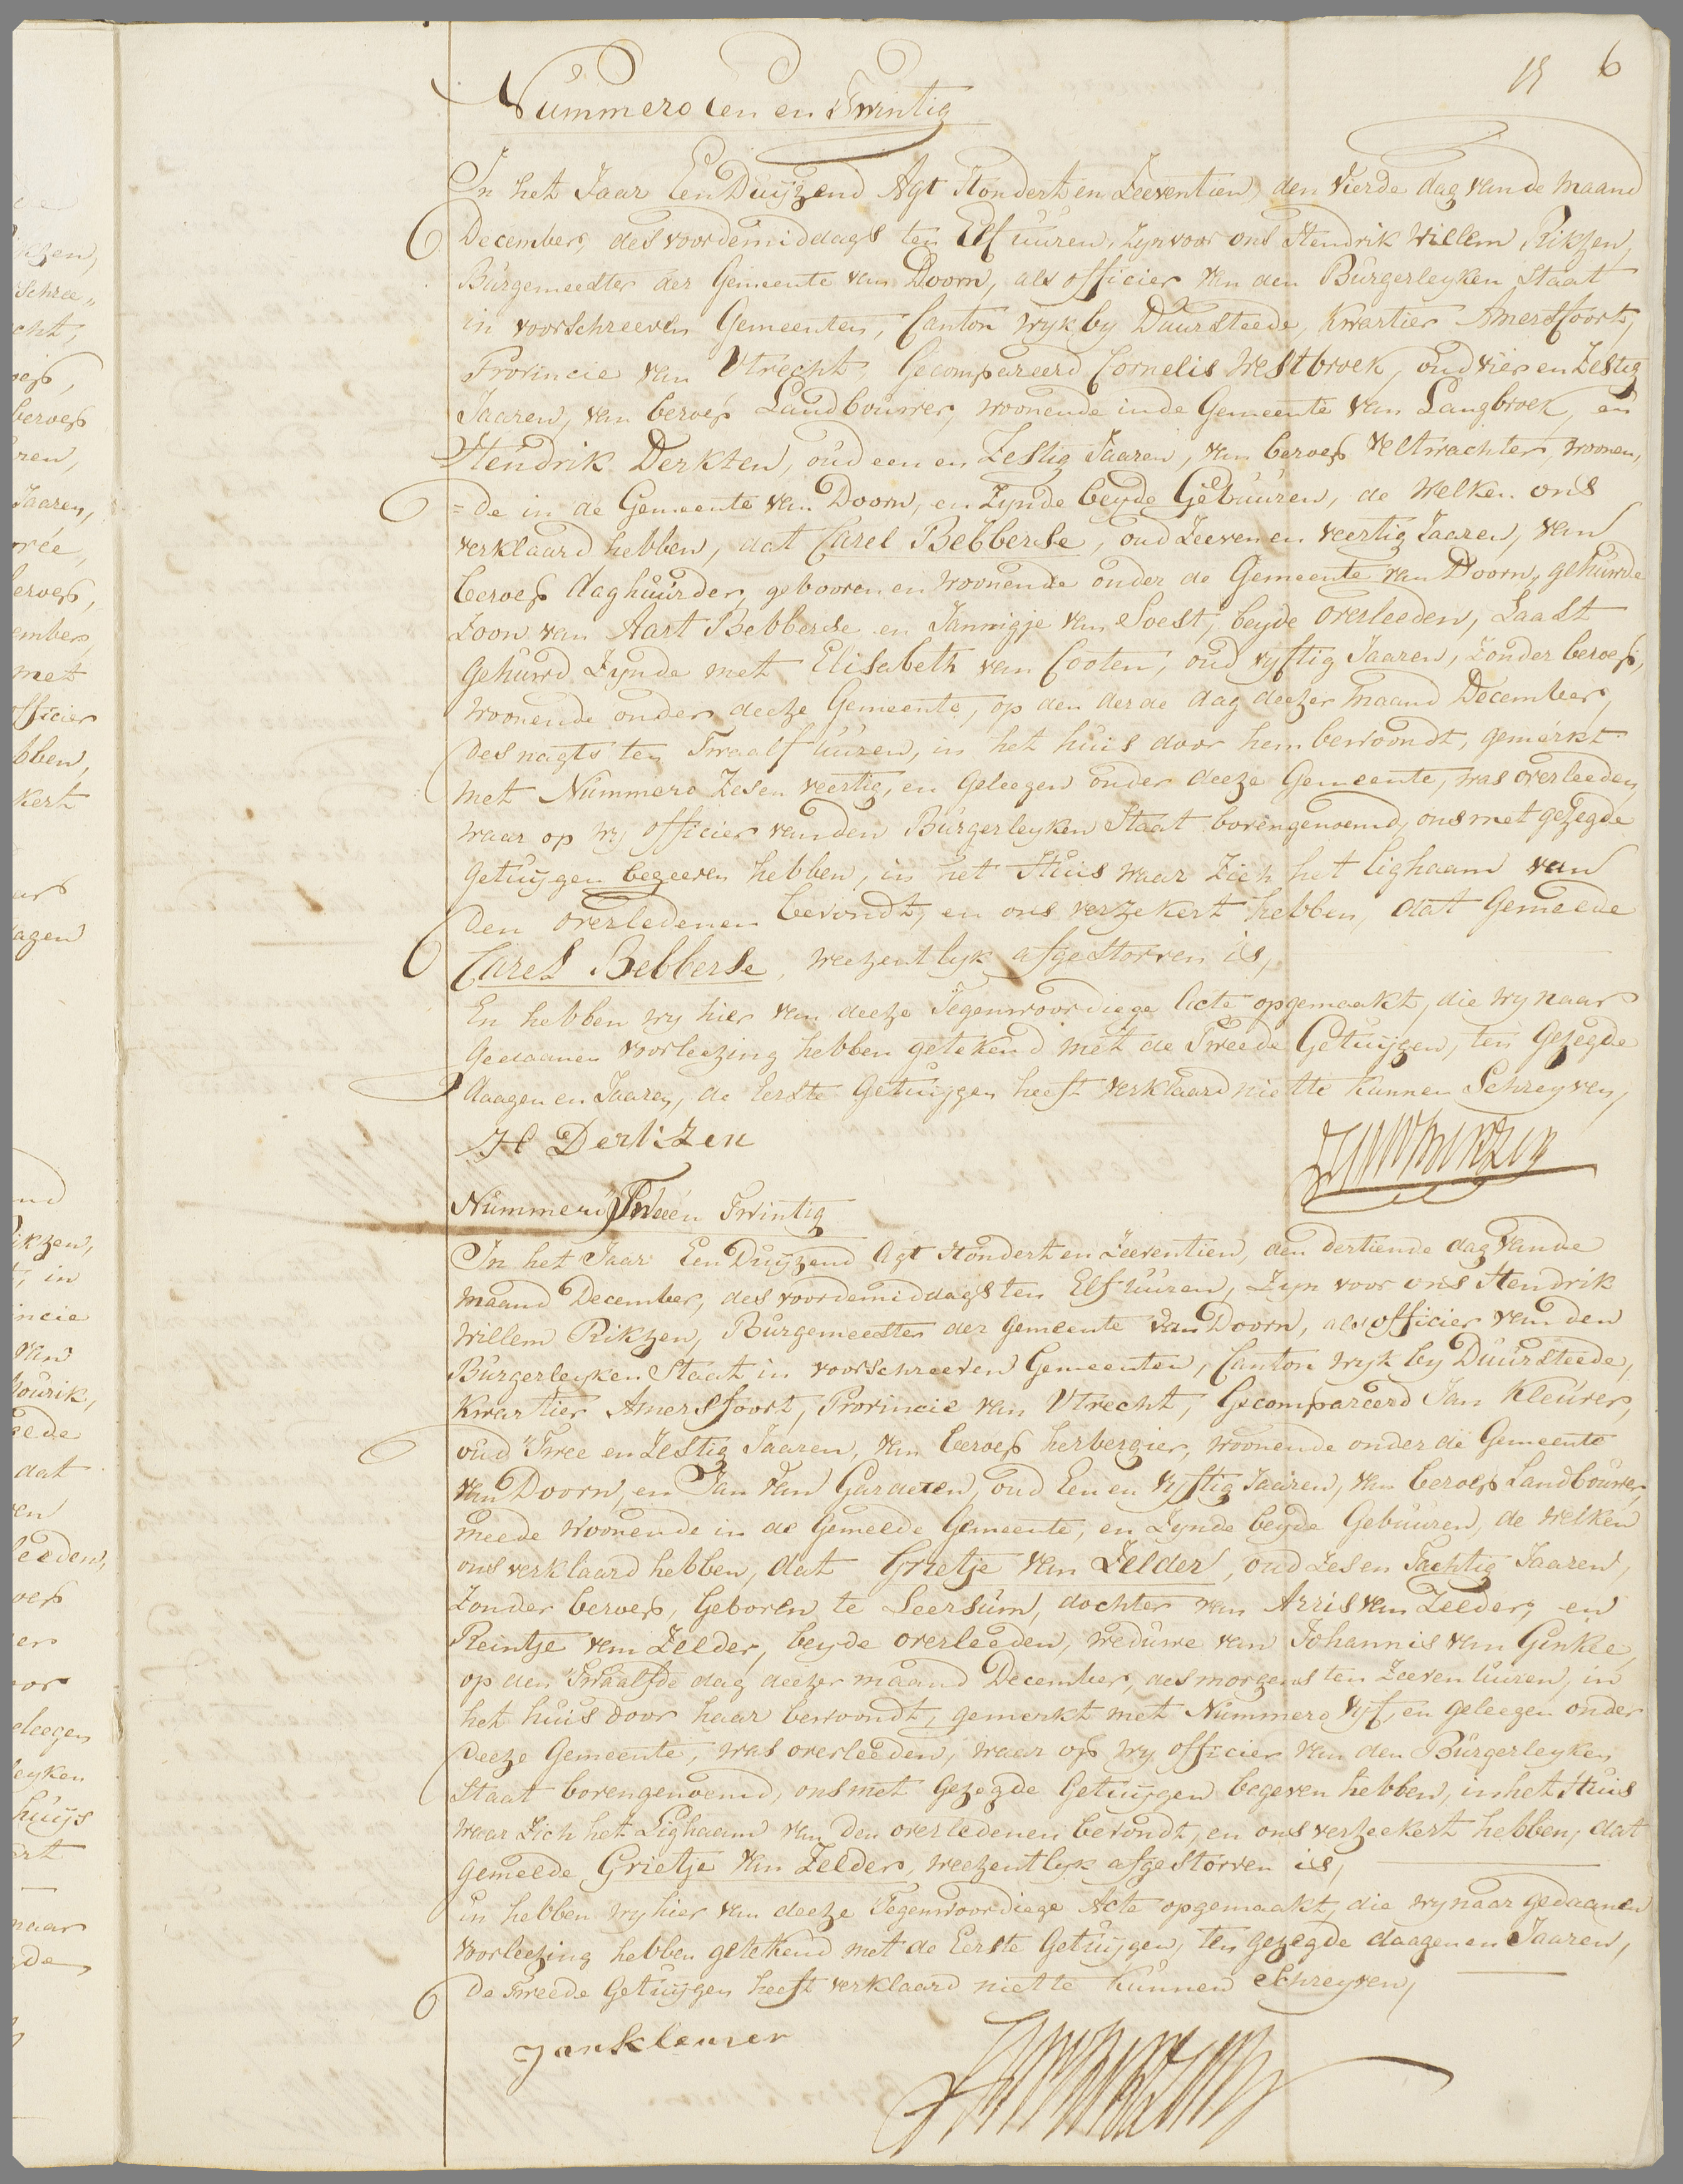 6
Nummero een en Twintig
In het Jaar Een Duijzend Agt Hondert en Zeeventien, den vierde dag van de maand
December, des voordemiddags ten Elf uuren, Zyn voor ons Hendrik Willem Rikzen,
Burgemeester der Gemeente van Doorn, als officier van den Burgerleyken Staat
in voorschreeven Gemeenten, Canton wyk by Duursteede, Kwartier Amersfoort,
Provincie van Utrecht, Gecompareerd Cornelis Westbroek, oud vier en Zestig
Jaaren, van beroep Landbouwer, woonende inde Gemeente van Langbroek, en
Hendrik Derkzen, oud een en Zestig Jaaren, van beroep Veltwachter, woonen,
=de in de Gemeente van Doorn, en Zynde beyde Gebuuren, de Welken ons
verklaard hebben, dat Carel Bebberse, oud Zeeven en veertig Jaaren, van
beroep daghuurder, gebooren en Woonende onder de Gemeente van Doorn, gehuwde
Zoon van Aart Bebberse en Jannigje van Soest, beyde overleeden, Laast
gehuwd Zynde met Elisabeth van Cooten, oud vyftig Jaaren, Zonder beroep,
Woonende onder deeze Gemeente, op den derde dag deezer maand December,
des nagts ten Twaalf uuren, in het huis door hem bewoondt, gemerkt
met Nummero Zes en veertig, en geleegen onder deeze Gemeente, was overleeden,
waar op wy officier van den Burgerleyken Staat bovengenoemd, ons met gezegde
getuijgen begeeven hebben, in het Huis waar Zich het lighaam van
den overledenen bevondt, en ons verzekert hebben, dat Gemeede
Carel Bebberse, weezentlyk afgestorven is,
En hebben wy hier van deeze Tegenwoordiege Acte opgemaakt, die wy naar
gedaanen voorleezing hebben getekend met de Tweede Getuijgen, ten gezegde
daagen en Jaaren, de Eerste Getuijgen heeft verklaard niet te kunnen Schreyven,
H Derkzen
Nummero Twee en Twintig
In het Jaar Een Duijzend Agt Hondert en Zeeventien, den dertiende dag van de
maand December, des voordemiddags ten Elf uuren, Zyn voor ons Hendrik
Willem Rikzen, Burgemeester der Gemeente van Doorn, als officier van den
Burgerleyken Staat in voorschreeven Gemeenten, Canton wyk by Duursteede,
Kwartier Amersfoort, Provincie van Utrecht, Gecompareerd Jan Kleurer,
oud Twee en Zestig Jaaren, van beroep herbergier, woonende onder de Gemeente
van Doorn, en Jan van Garderen, oud Een en vyftig Jaaren, van beroep Landbouwer,
meede Woonende in de Gemeede Gemeente, en Zynde beyde Gebuuren, de welken
ons verklaard hebben, dat Grietje van Zelder, oud Zes en Tachtig Jaaren,
Zonder beroep, Geboren te Leersum, dochter van Arris van Zeeder, en
Reintje van Zelder, beyde overleeden, weduwe van Johannis van Ginkle,
op den Twaalfde dag deezer maand December, des morgens ten Zeeven uuren, in
het huis door haar bewoondt, gemerkt met Nummero Vyf, en geleegen onder
deeze Gemeente, was overleeden, waar op wy officier van den Burgerleyken
Staat bovengenoemd, ons met gezegde Getuijgen begeven hebben, in het Huis
waar Zich het Lighaam van den overledenen bevondt, en ons verzeekert hebben, dat
gemeede Grietje van Zelder, weezentlyk afgestorven is,
en hebben wy hier van deeze Tegenwoordiege Acte opgemaakt, die wy naar gedaanen
voorleezing hebben getekend met de Eerste Getuijgen, ten gezegde daagen en Jaaren,
de Tweede Getuijgen heeft verklaard niet te kunnen Schreyven,
Jan Kleurer